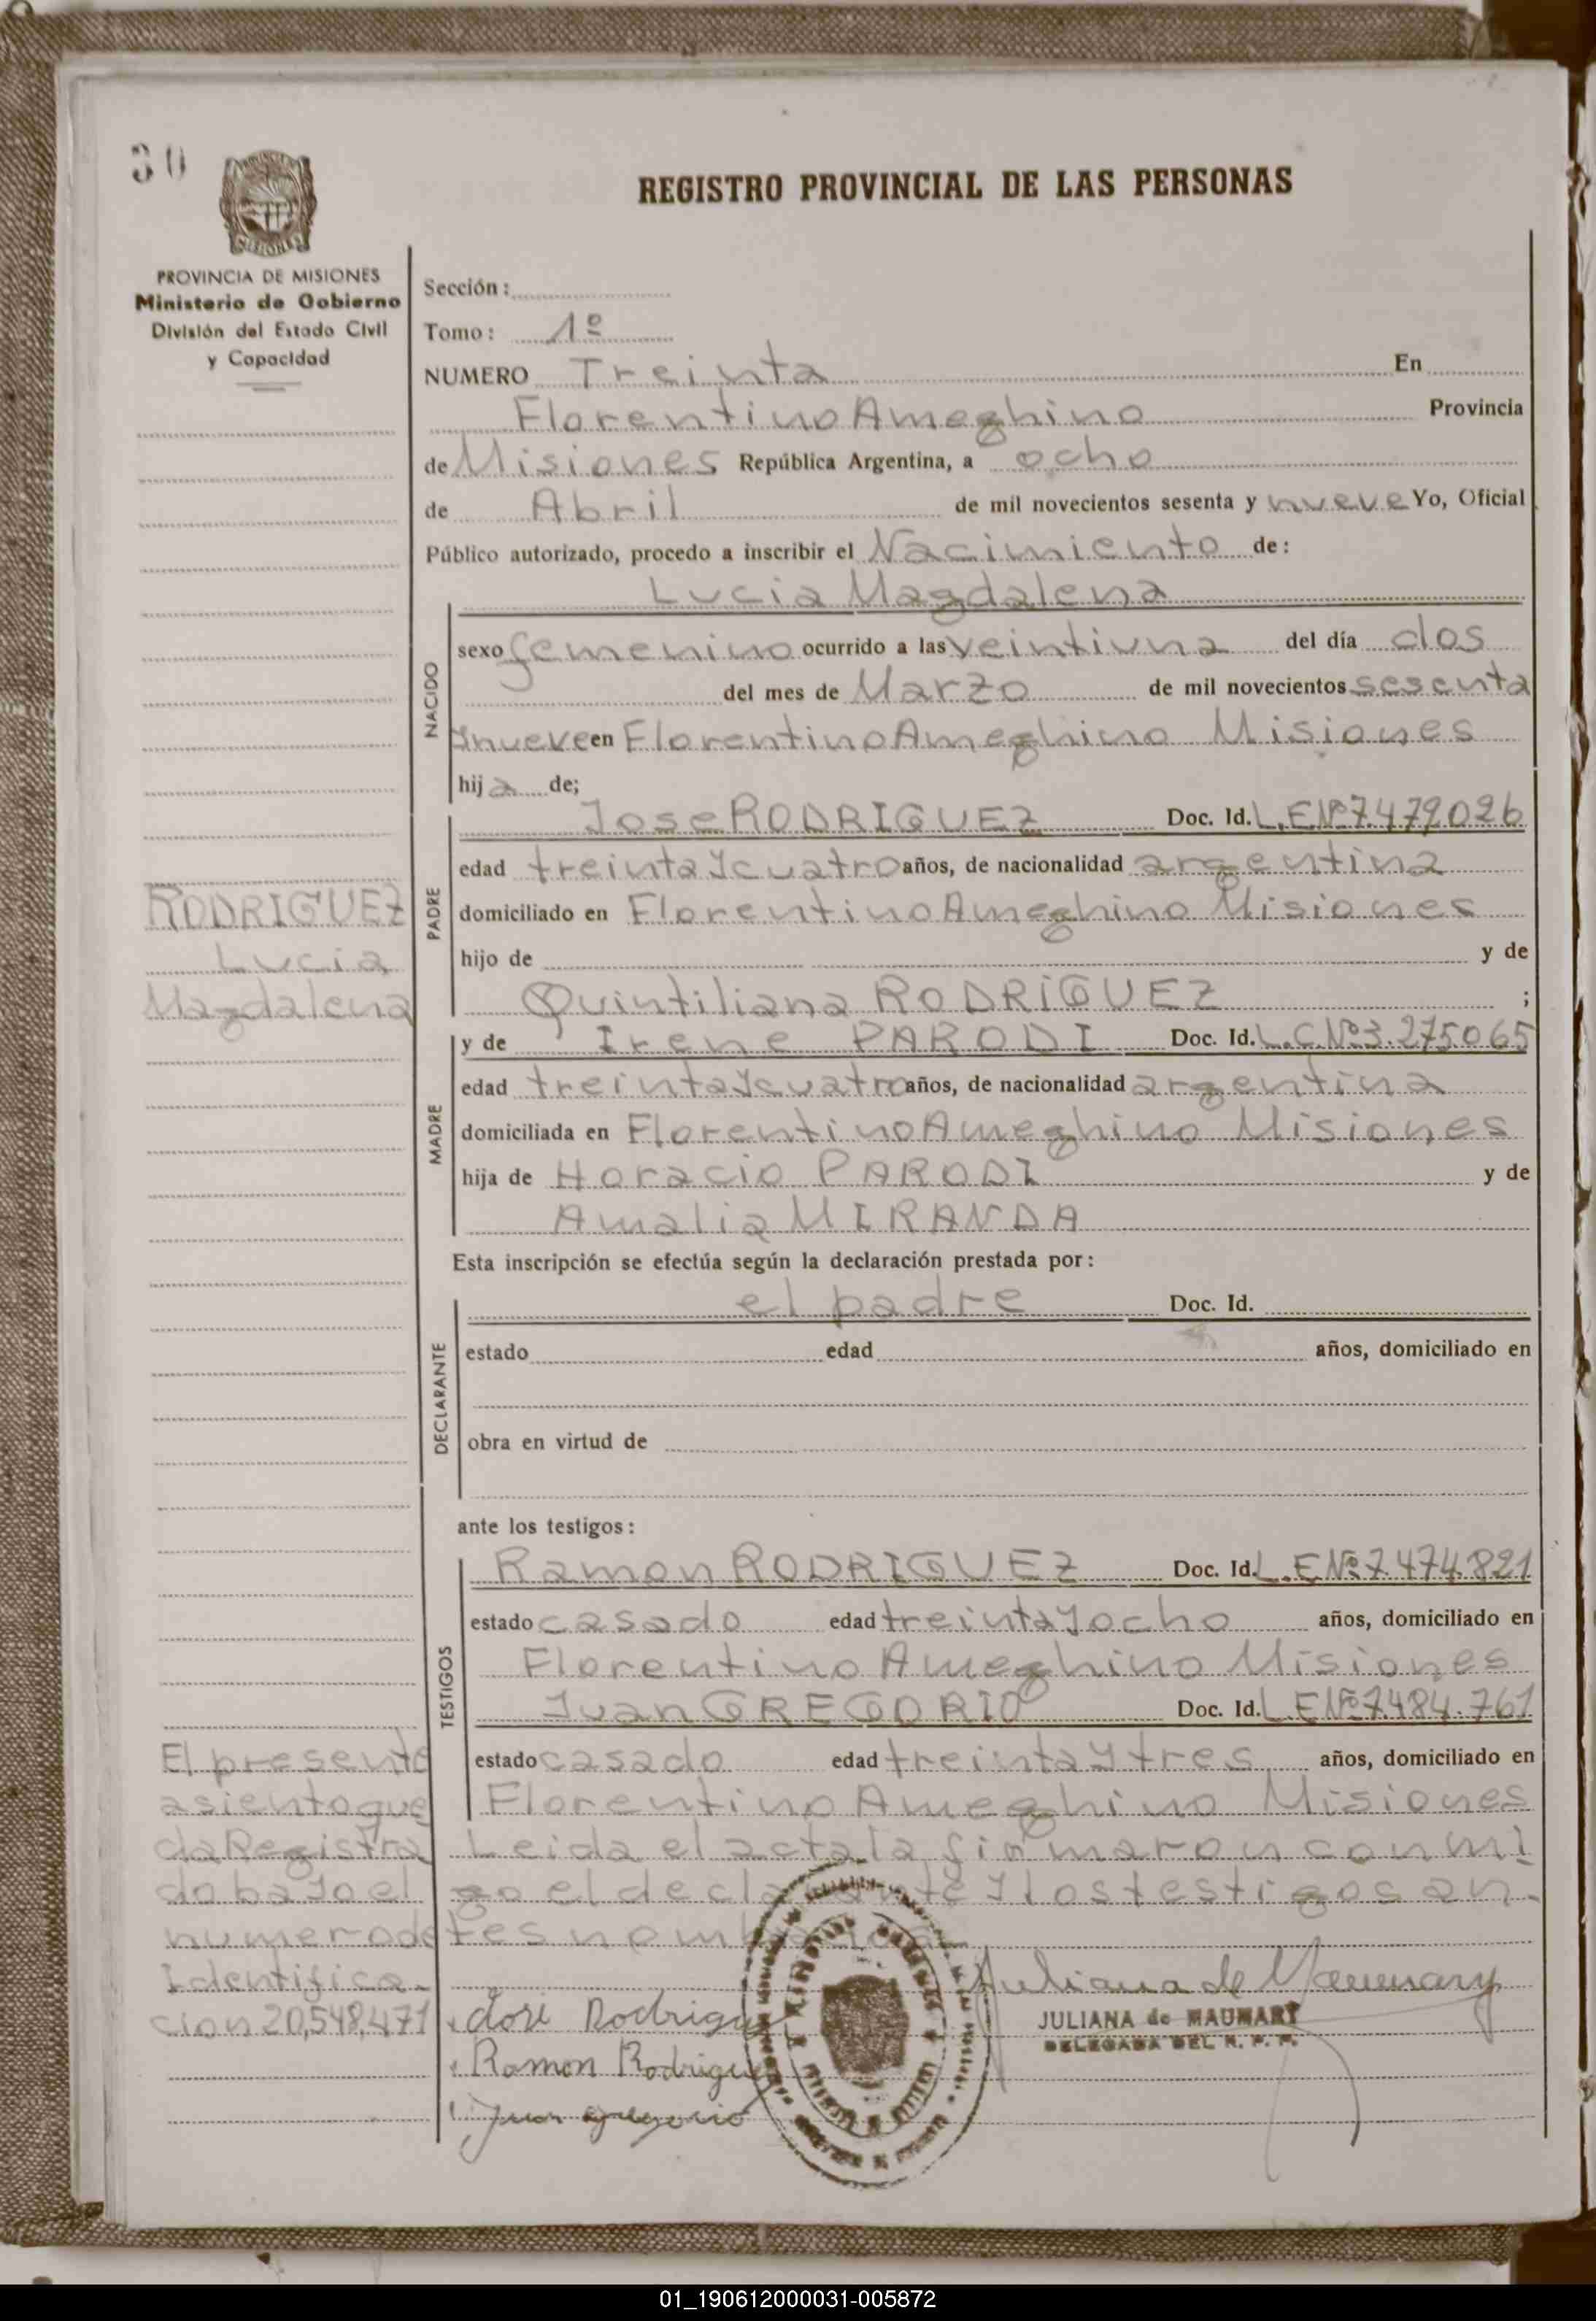 30
REGISTRO PROVINCIAL DE LAS PERSONAS
PROVINCIA DE MISIONES
Ministerio de Gobierno
División del Estado Civil
y Capacidad
Sección:
Tomo: 1º
NUMERO Treinta En
Florentino Ameghino Provincia
de Misiones República Argentina, a ocho
de Abril de mil novecientos sesenta y nueve Yo, Oficial
Público autorizado, procedo a inscribir el Nacimiento de:
Lucia Magdalena
NACIDO
sexo femenino ocurrido a las veintiuna del día dos
del mes de Marzo de mil novecientos sesenta
ynueve en Florentino Ameghino Misiones
hija de;
PADRE
Jose RODRIGUEZ Doc. Id. L.E.Nº7.479026
edad treinta y cuatro años, de nacionalidad argentina
domiciliado en Florentino Ameghino Misiones
hijo de y de
Quintiliana RODRIGUEZ ;
RODRIGUEZ
Lucia
Magdalena
MADRE
y de Irene PARODI Doc. Id. L.C.Nº3.275065
edad treinta y cuatro años, de nacionalidad argentina
domiciliada en Florentino Ameghino Misiones
hija de Horacio PARODI y de
Amalia MIRANDA
Esta inscripción se efectúa según la declaración prestada por:
DECLARANTE
el padre Doc. Id.
estado edad años, domiciliado en
obra en virtud de
ante los testigos:
TESTIGOS
Ramon RODRIGUEZ Doc. Id. L.E.Nº7.474.821
estado casado edad treinta y ocho años, domiciliado en
Florentino Ameghino Misiones
Juan GREGORIO Doc. Id. L.E.Nº7.484.761
estado casado edad treinta y tres años, domiciliado en
Florentino Ameghino Misiones
Leida el acta la firmaron conmi
go el declarante y los testigos an-
tes nombrados
El presente
asiento que
da Registra
do bajo el
numero de
Identifica-
cion 20,548,471
Juliana de Maumary
JULIANA de MAUMARY
DELEGADA DEL R. P. P.
José Rodriguez
Ramon Rodriguez
Juan Gregorio
01_190612000031-005872